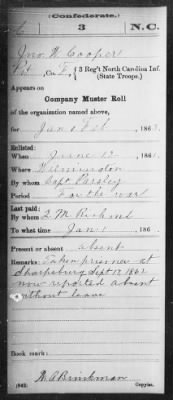 (Confederate.)
C 3 N.C.
Jno. W. Cooper
Pvt, Co. F, 3 Reg't North Carolina Inf.
(State Troops.)
Appears on
Company Muster Roll
of the organization named above,
for Jan & Feb, 1863.
Enlisted:
When June 13, 1861.
Where Wilmington
By whom Capt Parsley
Period For the war
Last paid:
By whom
To what time Jan 1, 186
Present or absent absent
Remarks: Taken prisoner at
Sharpsburg Sept 17 1862
now reported absent
without leave
Book mark:
(642) Copyist.